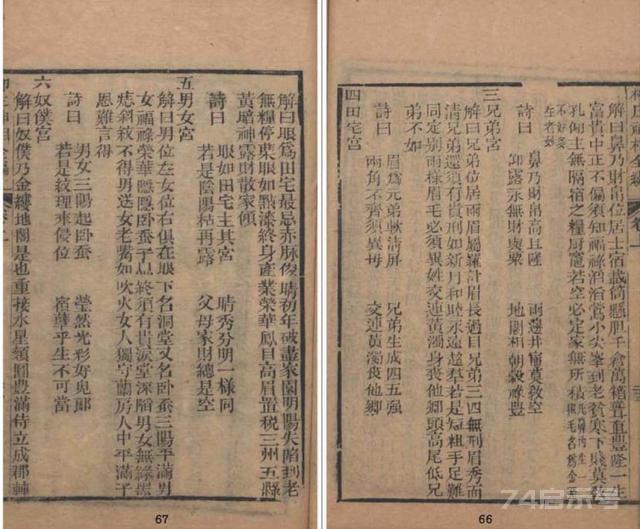 解曰鼻乃財帛位居土宿截筒懸胆千倉萬箱聳直豐隆一生
富貴中正不偏須知福祿滔滔鶯小尖峯到老貧寒下賤莫教
孔仰主無隔宿之糧厨竈若空必定家無所積
詩曰 鼻乃財帛高且隆 兩邊井竈莫教空
仰露永無財與粟 地閣相朝穀祿豐
三兄弟宮
解曰兄弟位居兩眉屬羅計眉長過目兄弟三四無刑眉秀而
清兄弟還須有貴形如新月和睦永遠超羣若是短粗手足離
同定别兩樣眉毛必須異姓交連黃濁身喪他鄉頭高尾低兄
弟不如
詩曰 眉為兄弟軟清屏 兄弟生成四五强
兩角不齊須異母 交連黃濁喪他鄉
四田宅宮
66
解曰眼為田宅最忌赤脉侵睛初年破盡家園明陽失陷到老
無糧停葉眼如點漆終身產業榮華鳳目高眉置税三州五縣
黃增神露財散家傾
詩曰 眼如田宅主其宮 晴秀分明一樣同
若是陰陽枯再露 父母家財總是空
五男女宮
解曰男位左女位右俱在眼下名洞堂又名卧蚕三陽平滿男
女福祿榮華隠隠卧蚕子息終須有貴淚堂深陷男女無緣黑
痣斜紋不得男送女老嘴如吹火女人獨守蘭房人中平滿子
恩難言得
詩曰 男女三陽起卧蚕 瑩然光彩好兒郎
若是紋理來侵位 宿孽平生不可當
六奴僕宮
解曰奴僕乃金縷地閣是也重接水星頦圓豐滿侍立成郡
67